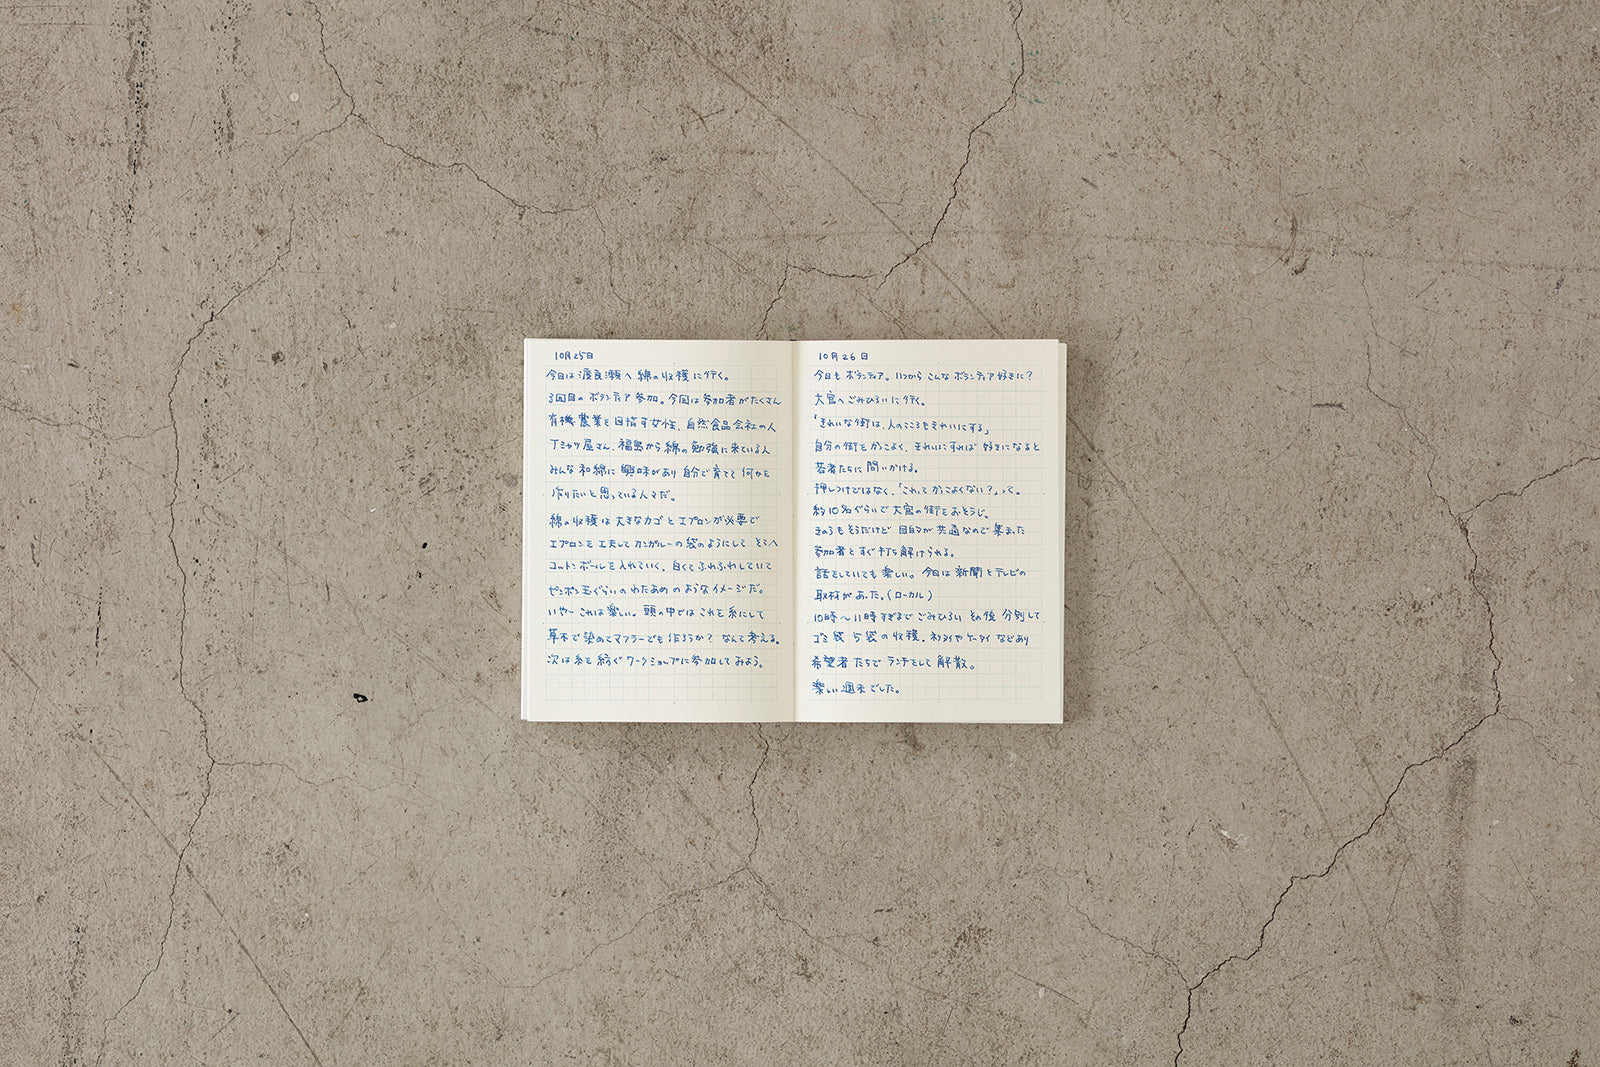 10月25日
今日は渡良瀬へ 綿の収穫に行く。
3回目の ボランティア参加。今回は参加者がたくさん
有機農業を目指す女性、自然食品会社の人
Tシャツ屋さん、福島から綿の勉強に来ている人
みんな 和綿に 興味があり 自分で育てて 何かを
作りたいと思っている人々だ。
綿の収穫は 大きなカゴと エプロンが必要で
エプロンを工夫して カンガルーの袋のようにして そこへ
コットンボールを入れていく。白くてふわふわしていて
ピンポン玉ぐらいの わたあめのような イメージだ。
いや〜 これは楽しい。頭の中では これを糸にして
草木で染めてマフラーでも作ろうか? なんて考える。
次は糸を紡ぐ ワークショップに参加してみよう。
10月26日
今日も ボランティア。いつから こんな ボランティア好きに?
大宮へごみひろいに行く。
「きれいな街は、人のこころもきれいにする」
自分の街をかっこよく、きれいにすれば 好きになると
若者たちに 問いかける。
押しつけではなく、「これって かっこよくない?」って。
約10名ぐらいで 大宮の街を おそうじ。
きのうもそうだけど 目的が 共通なので 集まった
参加者とすぐ打ち解けられる。
話をしていても 楽しい。今日は 新聞とテレビの
取材があった。(ローカル)
10時〜11時すぎまで ごみひろい その後 分別して
ゴミ袋 5袋の収穫。ネクタイや ケータイ などあり
希望者たちで ランチをして 解散。
楽しい週末でした。